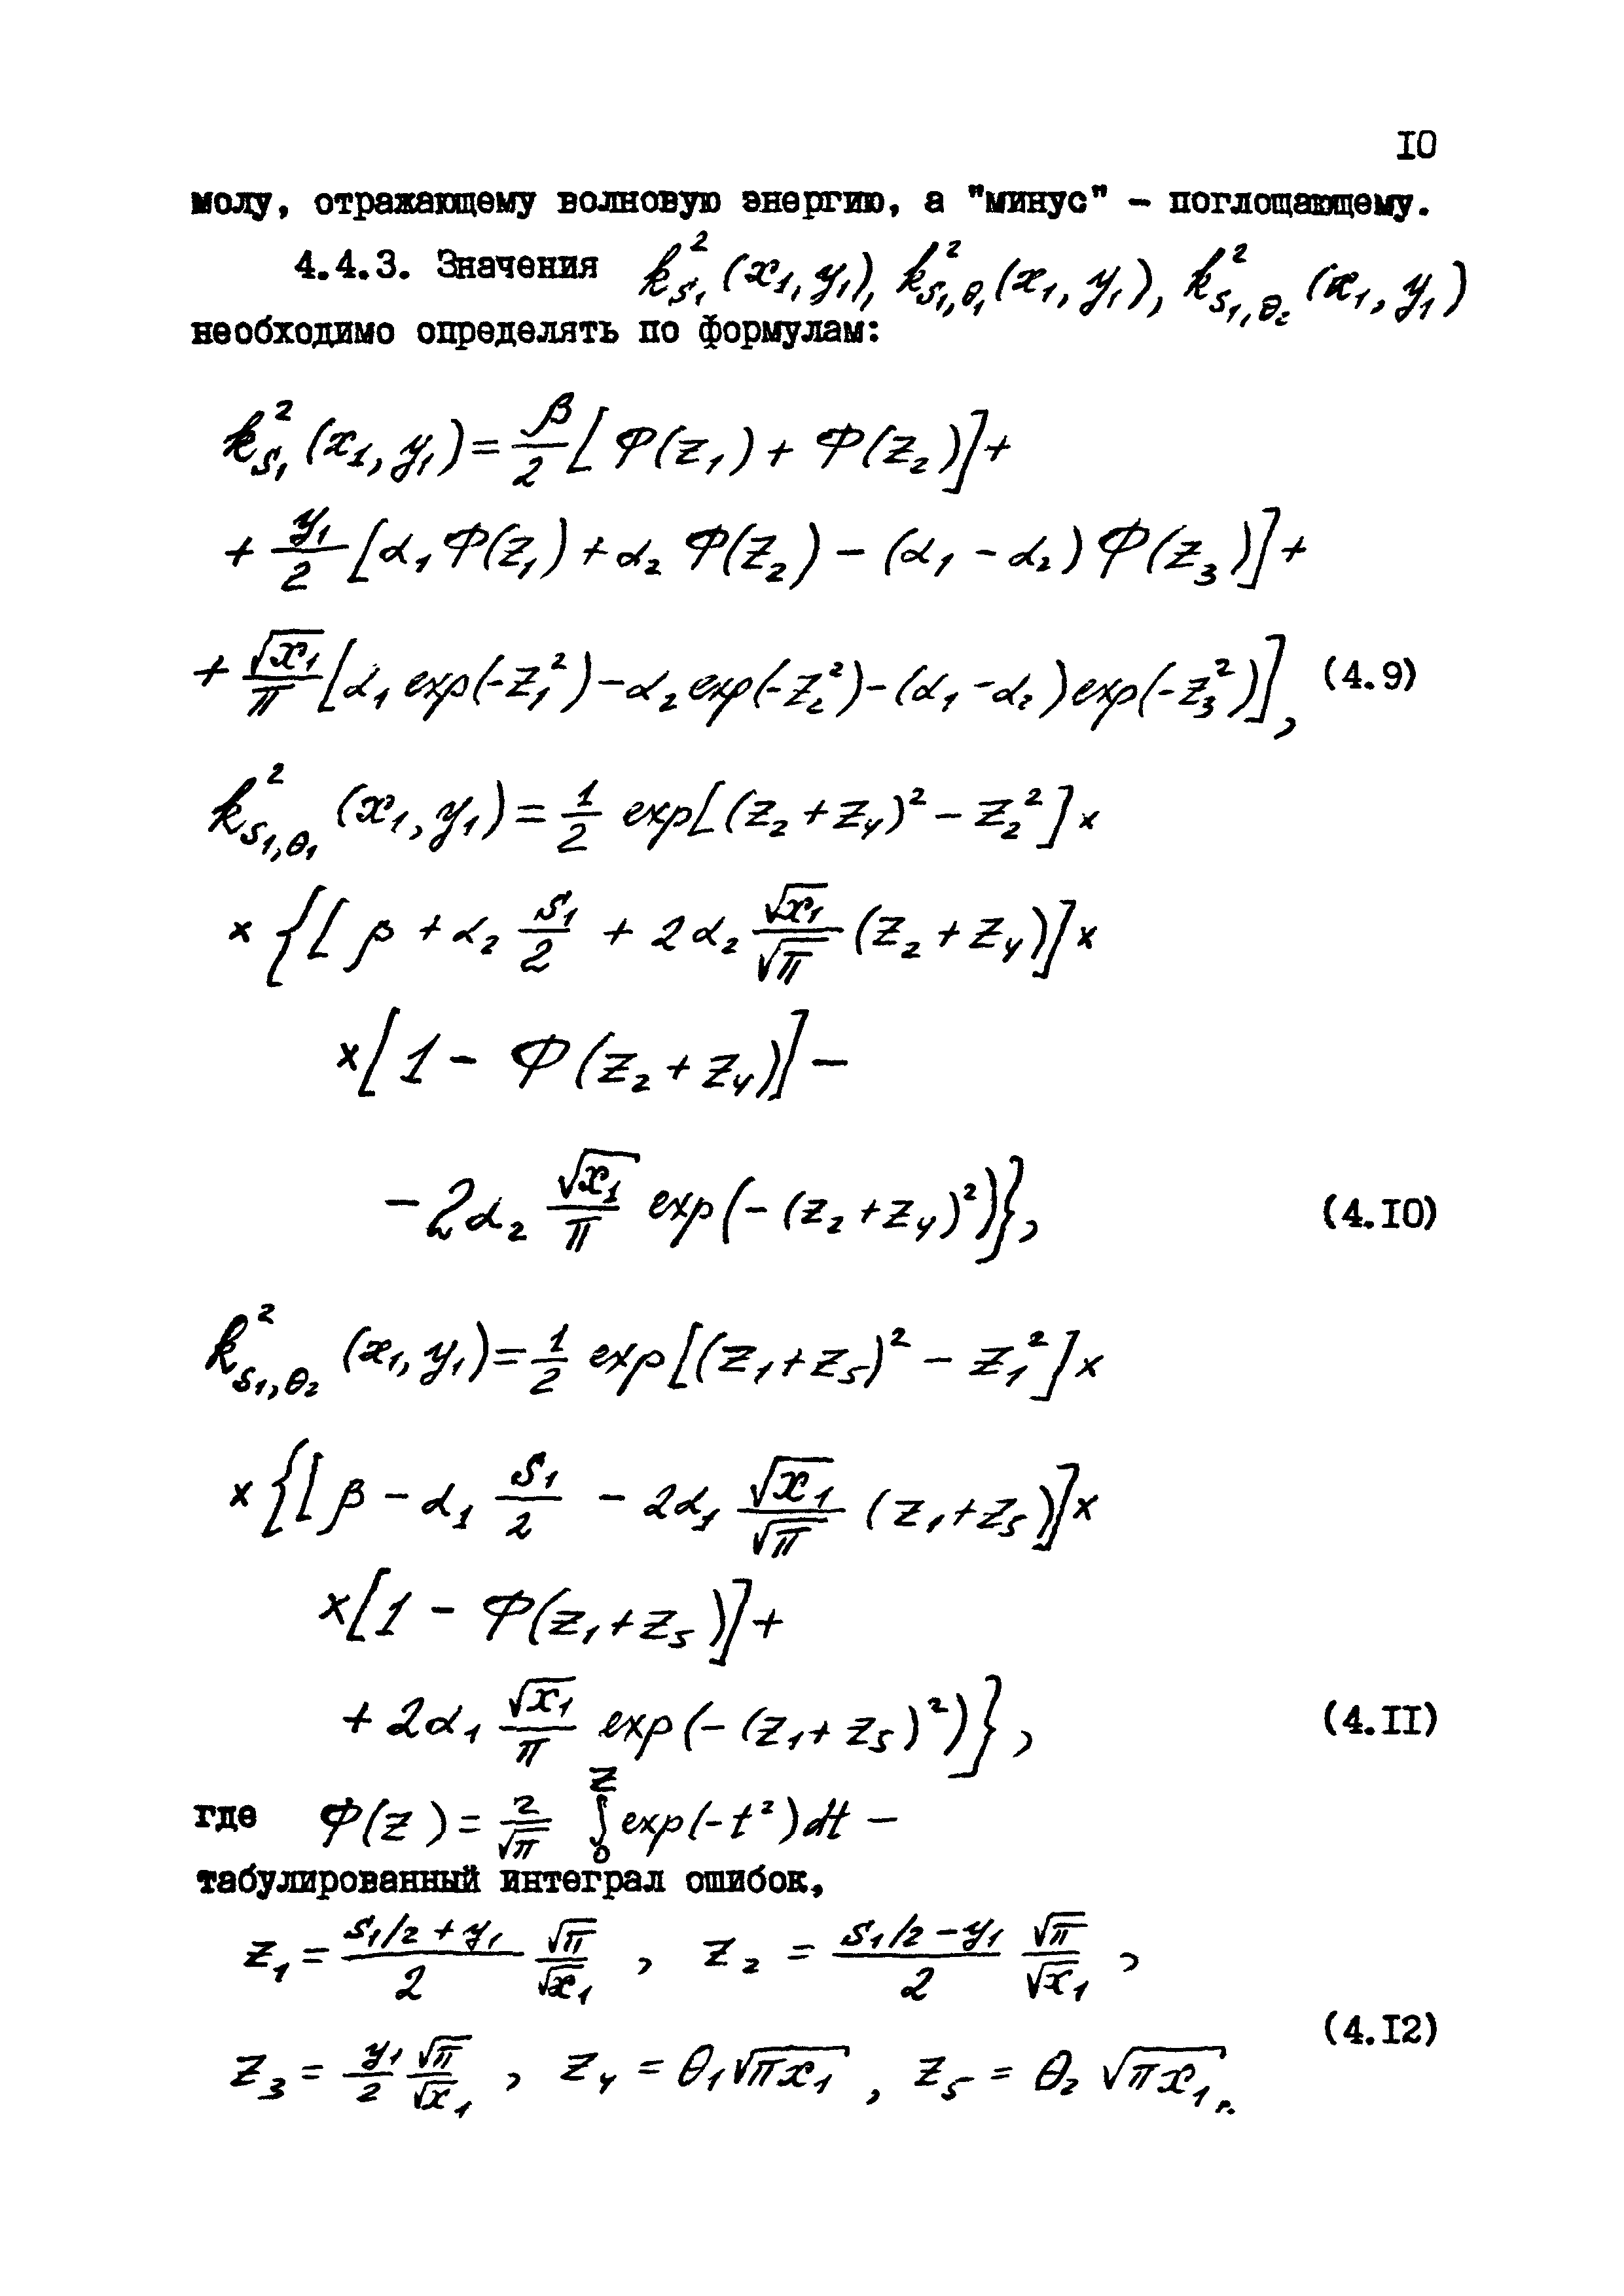 10
молу, отражающему волновую энергию, а "минус" - поглощающему.
4.4.3. Значения k²_{S₁}(x₁, y₁), k²_{S₁,θ₁}(x₁, y₁), k²_{S₁,θ₂}(x₁, y₁)
необходимо определять по формулам:
k²_{S₁}(x₁, y₁) = β/2 [Φ(z₁) + Φ(z₂)] +
+ y₁/2 [α₁ Φ(z₁) + α₂ Φ(z₂) - (α₁ - α₂) Φ(z₃)] +
+ √x₁/π [α₁ exp(-z₁²) - α₂ exp(-z₂²) - (α₁ - α₂) exp(-z₃²)], (4.9)
k²_{S₁,θ₁}(x₁, y₁) = 1/2 exp[(z₂ + z₄)² - z₂²] ×
× {[β + α₂ S₁/2 + 2α₂ √x₁/√π (z₂ + z₄)] ×
× [1 - Φ(z₂ + z₄)] -
- 2α₂ √x₁/π exp(-(z₂ + z₄)²)}, (4.10)
k²_{S₁,θ₂}(x₁, y₁) = 1/2 exp[(z₁ + z₅)² - z₁²] ×
× {[β - α₁ S₁/2 - 2α₁ √x₁/√π (z₁ + z₅)] ×
× [1 - Φ(z₁ + z₅)] +
+ 2α₁ √x₁/π exp(-(z₁ + z₅)²)}, (4.11)
где Φ(z) = 2/√π ∫₀^z exp(-t²)dt -
табулированный интеграл ошибок,
z₁ = (S₁/2 + y₁)/2 √π/√x₁, z₂ = (S₁/2 - y₁)/2 √π/√x₁,
(4.12)
z₃ = y₁/2 √π/√x₁, z₄ = θ₁√(πx₁), z₅ = θ₂√(πx₁).